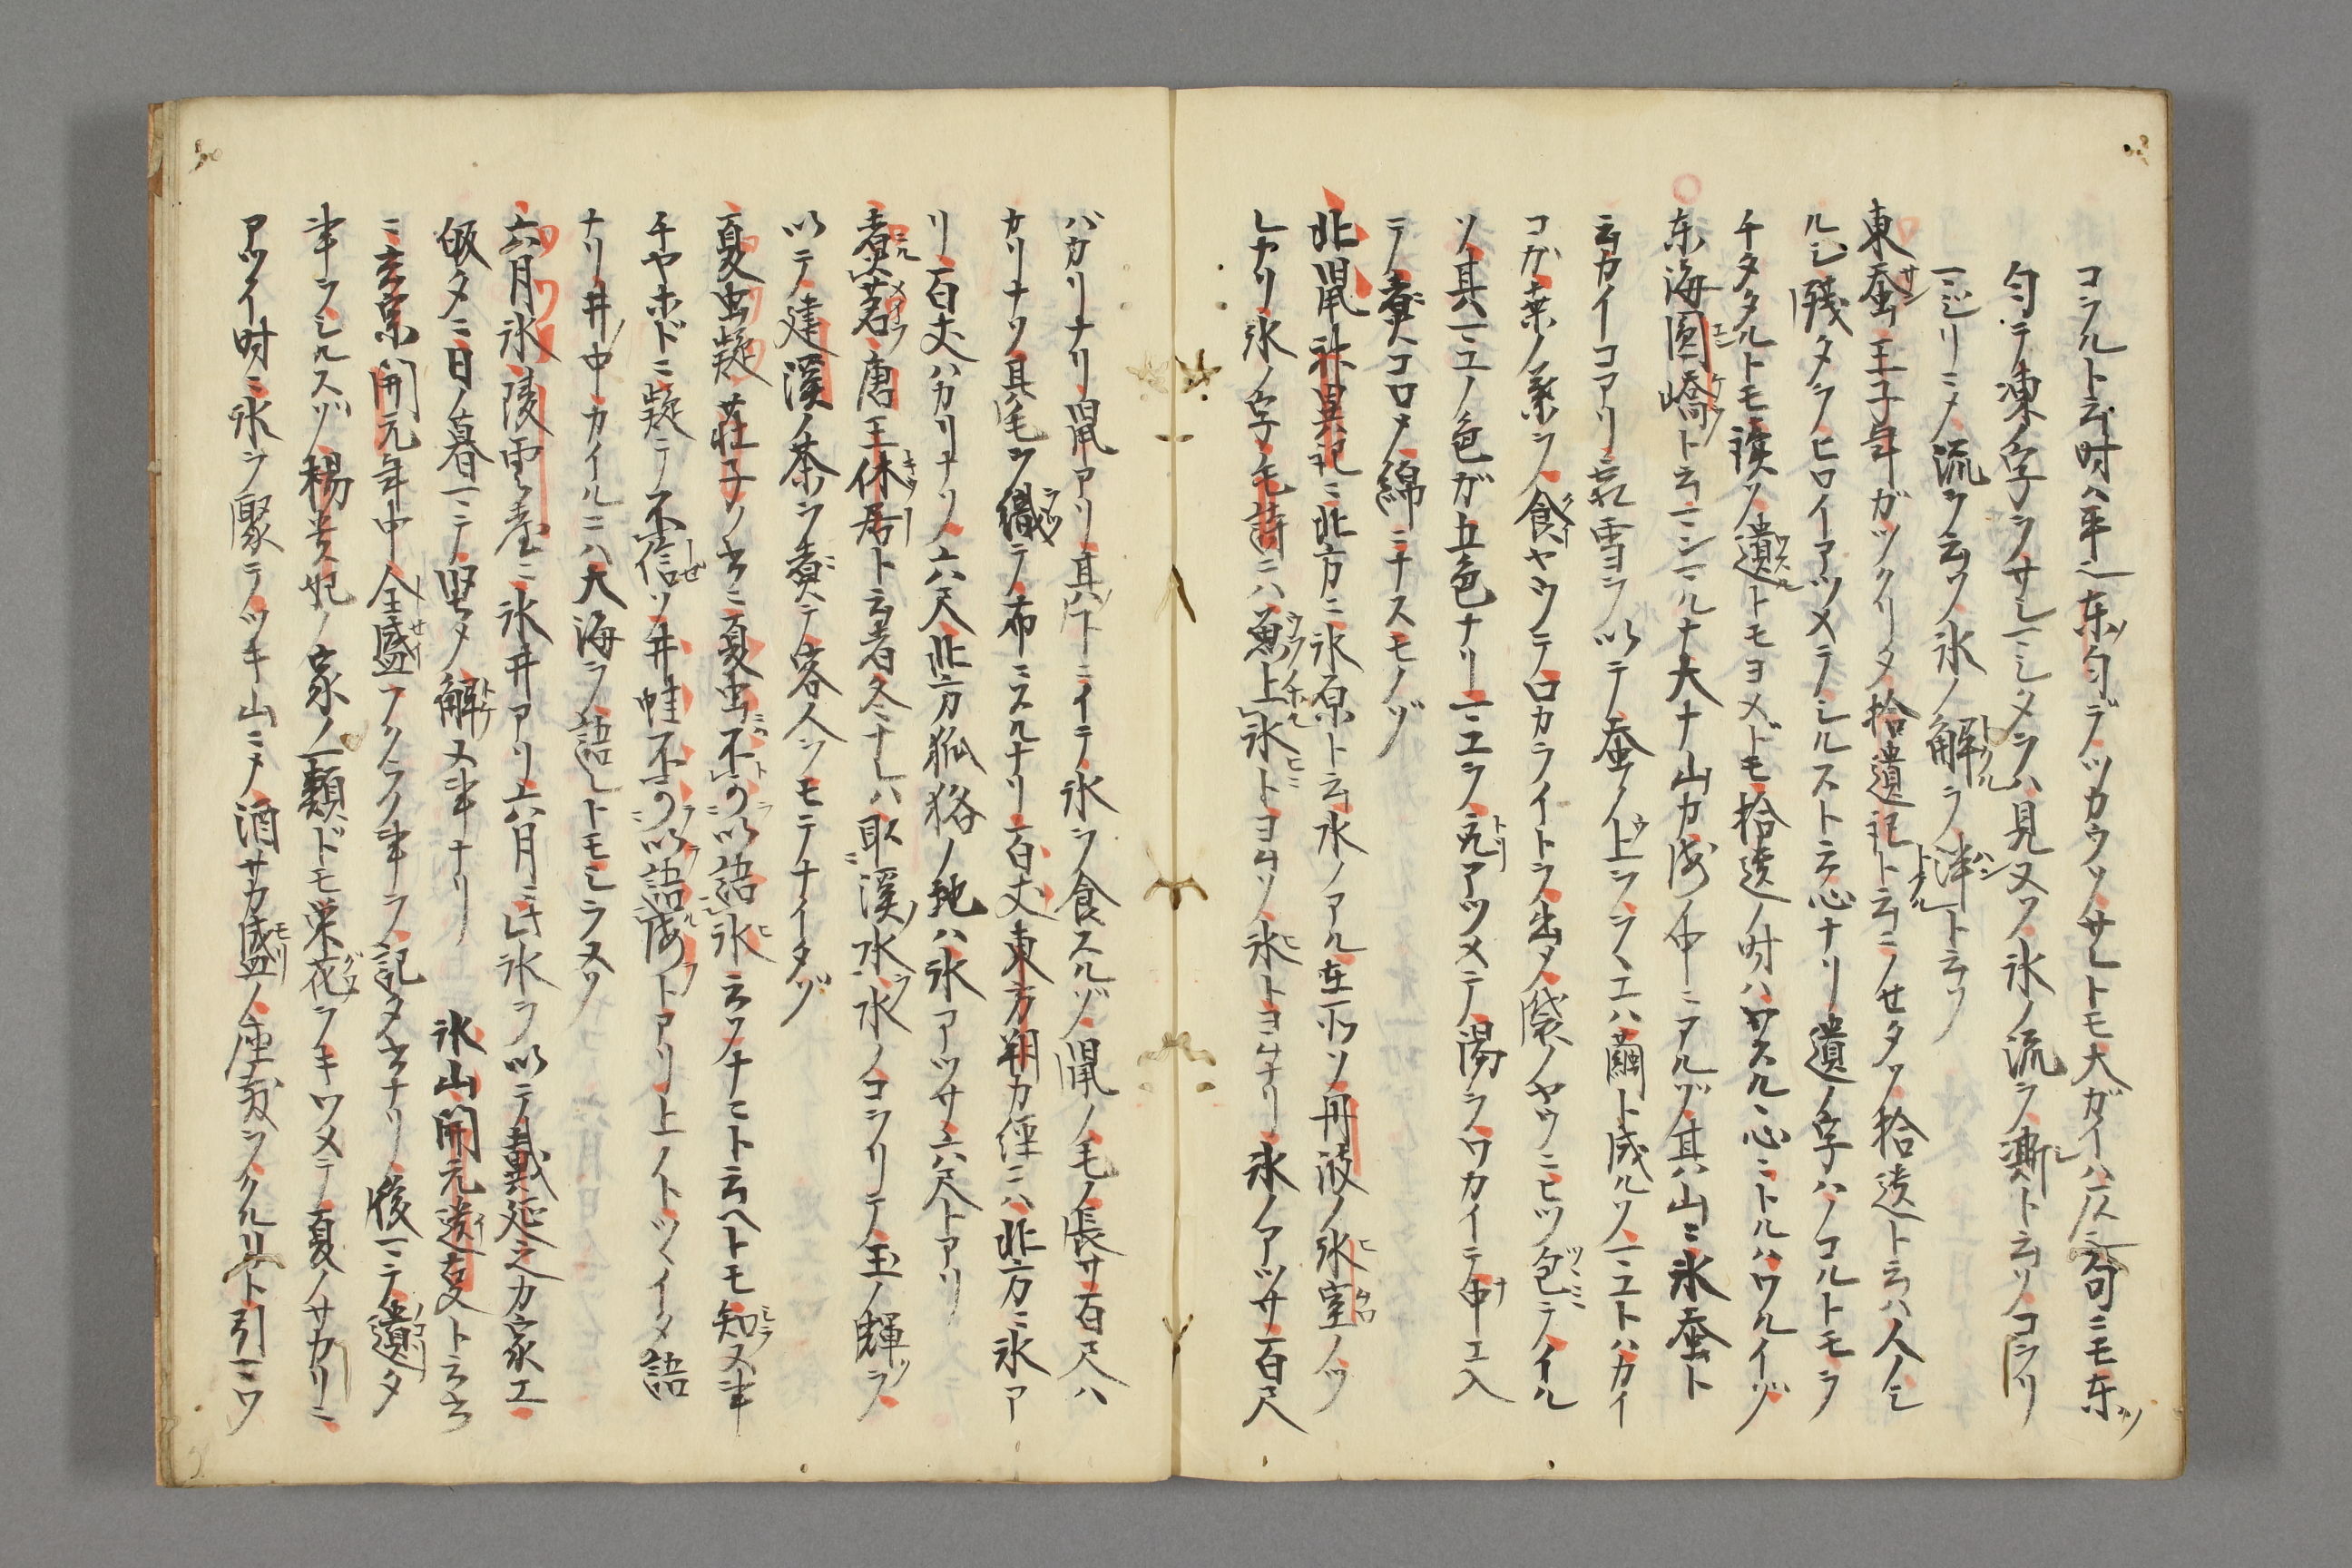 コヲルト云時ハ平也東ノ匂デツカウソサレトモ大ガイハ仄ノ句ニモ東ソ
匂テ凍ノ字ヲサシマシタヲハ見ヌソ氷ノ流ヲ澌ト云ソコヲリ
マジリニメ流ヲ云ソ氷ノ解ヲ泮ト云ソ
東蚕王子年ガツクリタ拾遺記ト云ニノせタソ拾遺ト云ハ人ノシ
ルシ残タヲヒロイアツメテシルスト云心ナリ遺ノ字ハノコルトモヲ
チタタルトモ讀ソ遺トモヨメドモ拾遺ノ時ハワスル心ニトルハワルイゾ
东海圓嶠ト云マシマルナ大ナ山カ海ノ中ニアルゾ其ハ山ニ氷蚕ト
云カイコアリ霜雪ヲ以テ蚕ノ上ヲヲヽエハ繭ト成ルソマユトハカイ
コガ桒ノ葉ヲ食ヤウテ口カライトヲ出メ袋ノヤウニヒツ包テイル
ソ其マユノ色ガ五色ナリマユヲ取アツメテ湯ヲワカイテ中エ入
テ煑コロメ綿ニナスモノゾ
北鼠神異記ニ北方ニ氷原ト云水ノアル在所ソ丹波ノ氷室ノソ
レヤリ氷ノ字モ詩ニハ魚上氷トヨムソ氷トヨムナリ氷ノアツサ百尺
バカリナリ鼠アリ其下ニイテ氷ヲ食スルゾ鼠ノ毛ノ長サ百尺ハ
カリナソ其毛ヲ織テ布ニスルナリ百丈東方朔カ經ニハ北方ニ氷ア
リ百丈ハカリナリ六八尺北方狐狢ノ地ハ氷アツサ六尺トアリ
煑茗唐王休居ト云者冬ナレハ取溪氷水ノコヲリテ玉ノ輝ヲ
以テ建溪ノ茶ヲ煑テ客人ヲモテナイタゾ
夏虫疑荘子ノ書ニ夏虫不可以語氷云ワナニト云ヘトモ知ヌ事
チヤホドニ疑テ不信ソ井蛙不可以語海トアリ上ノトツヽイタ語
ナリ井ノ中カイルニハ大海ヲ語レトモシラヌソ
六月氷陵雲臺ニ氷井アリ六月ニ此氷ヲ以テ戴延之カ家エ
皈タニ日ノ暮マテ堅メ解ヌ事ナリ 氷山開元遺文ト云書
ニ玄宗開元年中全盛ヲクラノ事ヲ記タ書ナリ後マテ遺タ
事ヲシルスゾ楊貴妃ノ家ノ一類ドモ栄花ヲキワメテ夏ノサカリニ
アツイ時ニ氷ヲ聚テツキ山ニメ酒サカ盛ノ座敷ヲクルリト引マワ